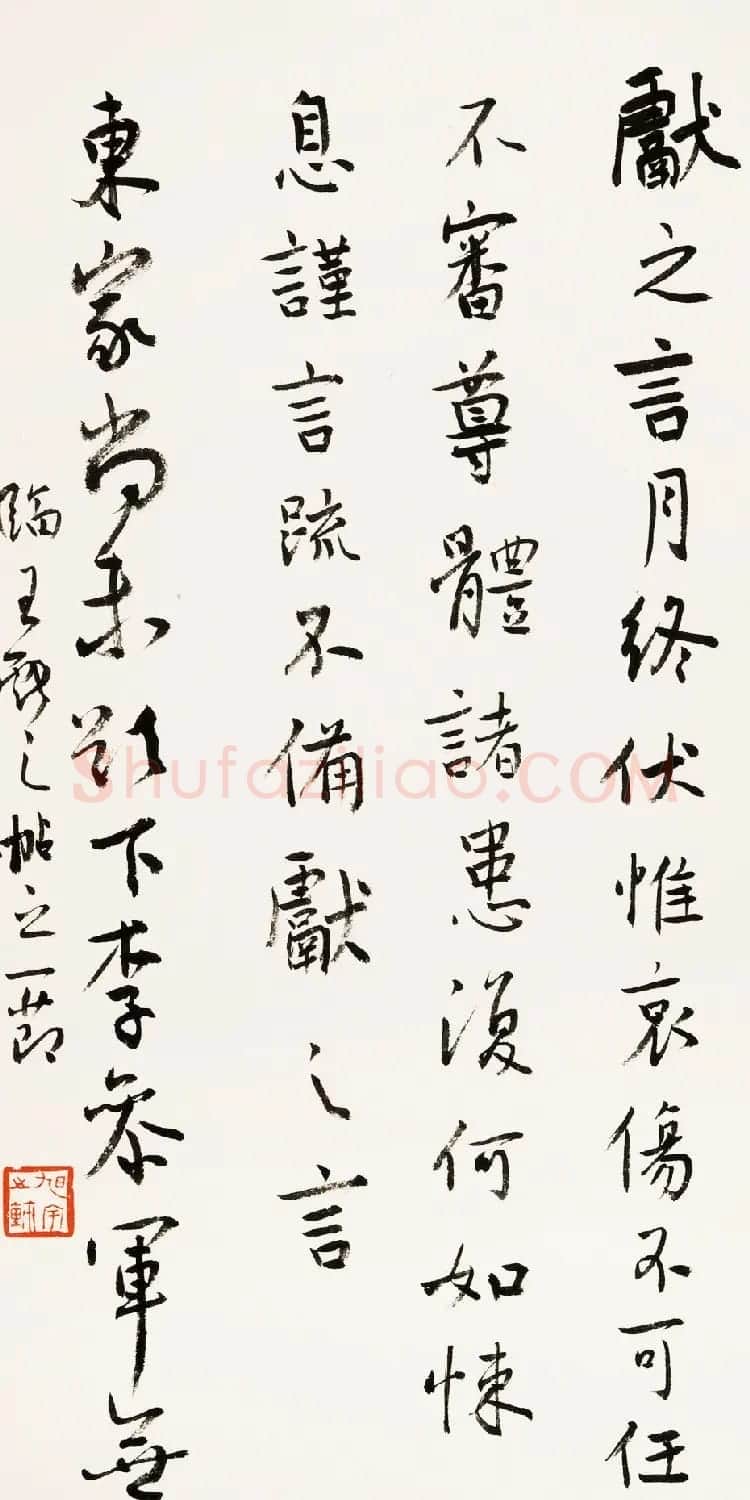 獻之言月終伏惟哀傷不可任
不審尊體諸患復何如悚
息謹言疏不備獻之言
東家尚未欲下李參軍無
臨王獻之帖之一節
旭宇
Shufaziliao.COM